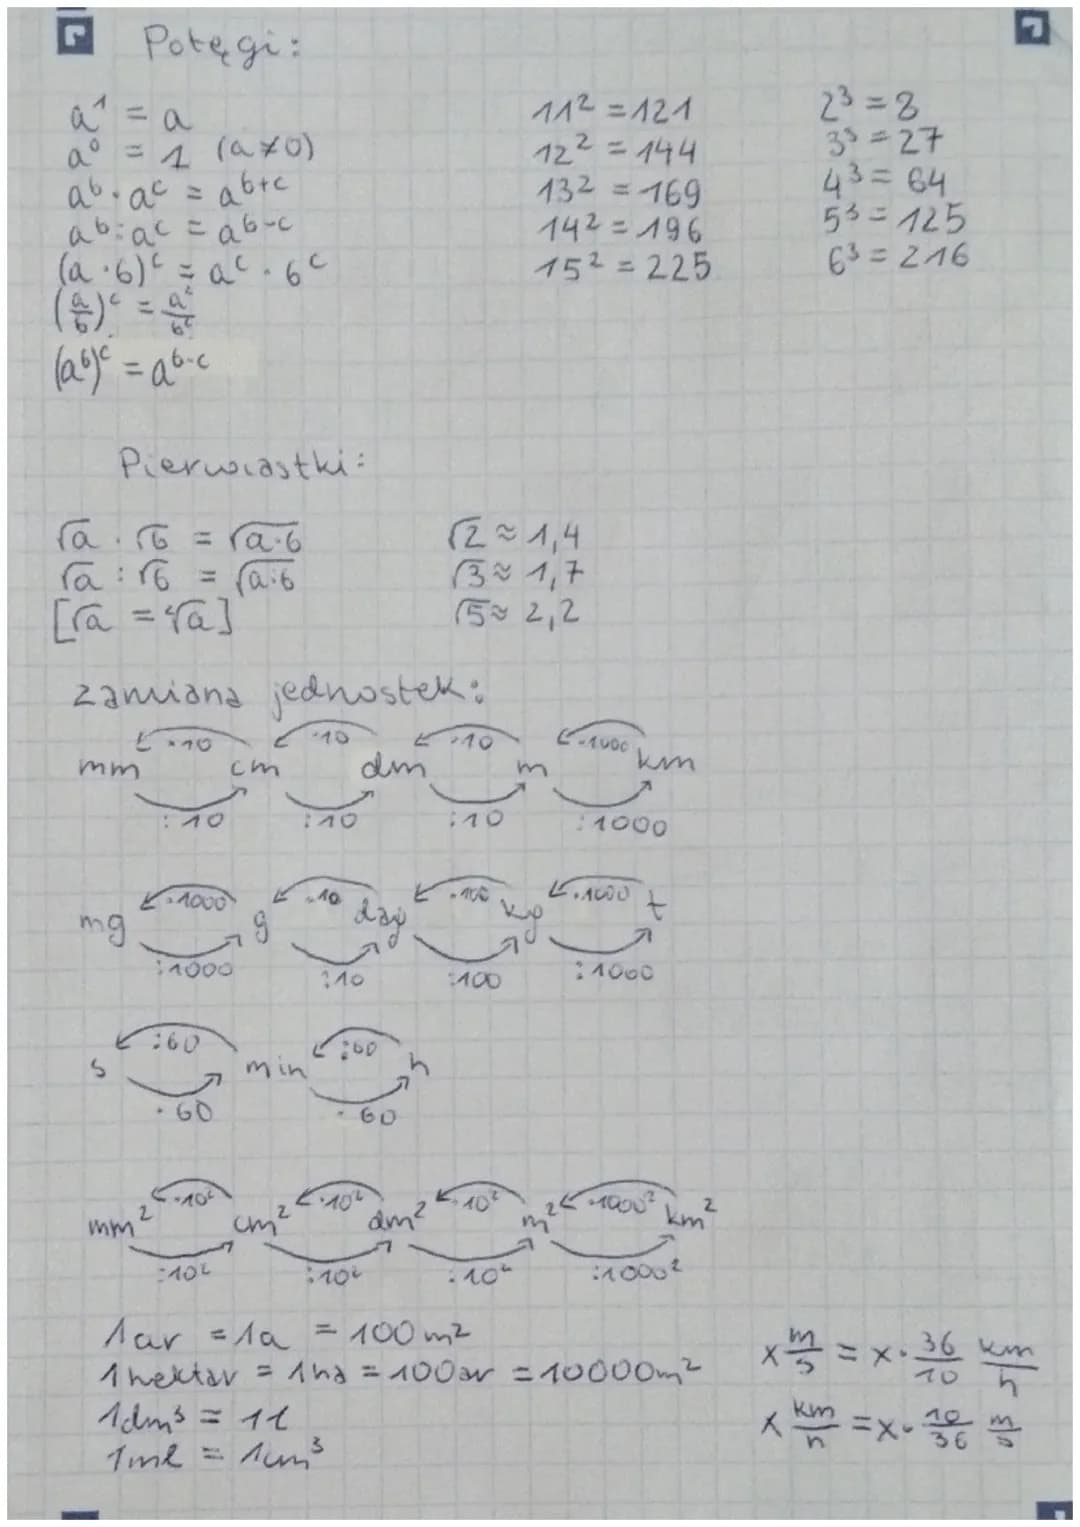 Potęgi:
a¹ = a
a⁰ = 1 (a≠0)
aᵇ · aᶜ = aᵇ⁺ᶜ
aᵇ : aᶜ = aᵇ⁻ᶜ
(a · b)ᶜ = aᶜ · bᶜ
(a/b)ᶜ = aᶜ/bᶜ
(aᵇ)ᶜ = aᵇ·ᶜ
11² = 121
12² = 144
13² = 169
14² = 196
15² = 225
2³ = 8
3³ = 27
4³ = 64
5³ = 125
6³ = 216
Pierwiastki:
√a · √b = √a·b
√a : √b = √a:b
[√a = ⁴√a]
√2 ≈ 1,4
√3 ≈ 1,7
√5 ≈ 2,2
Zamiana jednostek:
·10 ·10 ·10 ·1000
mm cm dm m km
:10 :10 :10 :1000
·1000 ·10 ·100 ·1000
mg g dag kg t
:1000 :10 :100 :1000
:60 :60
s min h
·60 ·60
·10² ·10² ·10² ·1000²
mm² cm² dm² m² km²
:10² :10² :10² :1000²
1ar = 1a = 100m²
1hektar = 1ha = 100ar = 10000m²
1dm³ = 1l
1ml = 1cm³
x m/s = x · 36/10 km/h
x km/h = x · 10/36 m/s